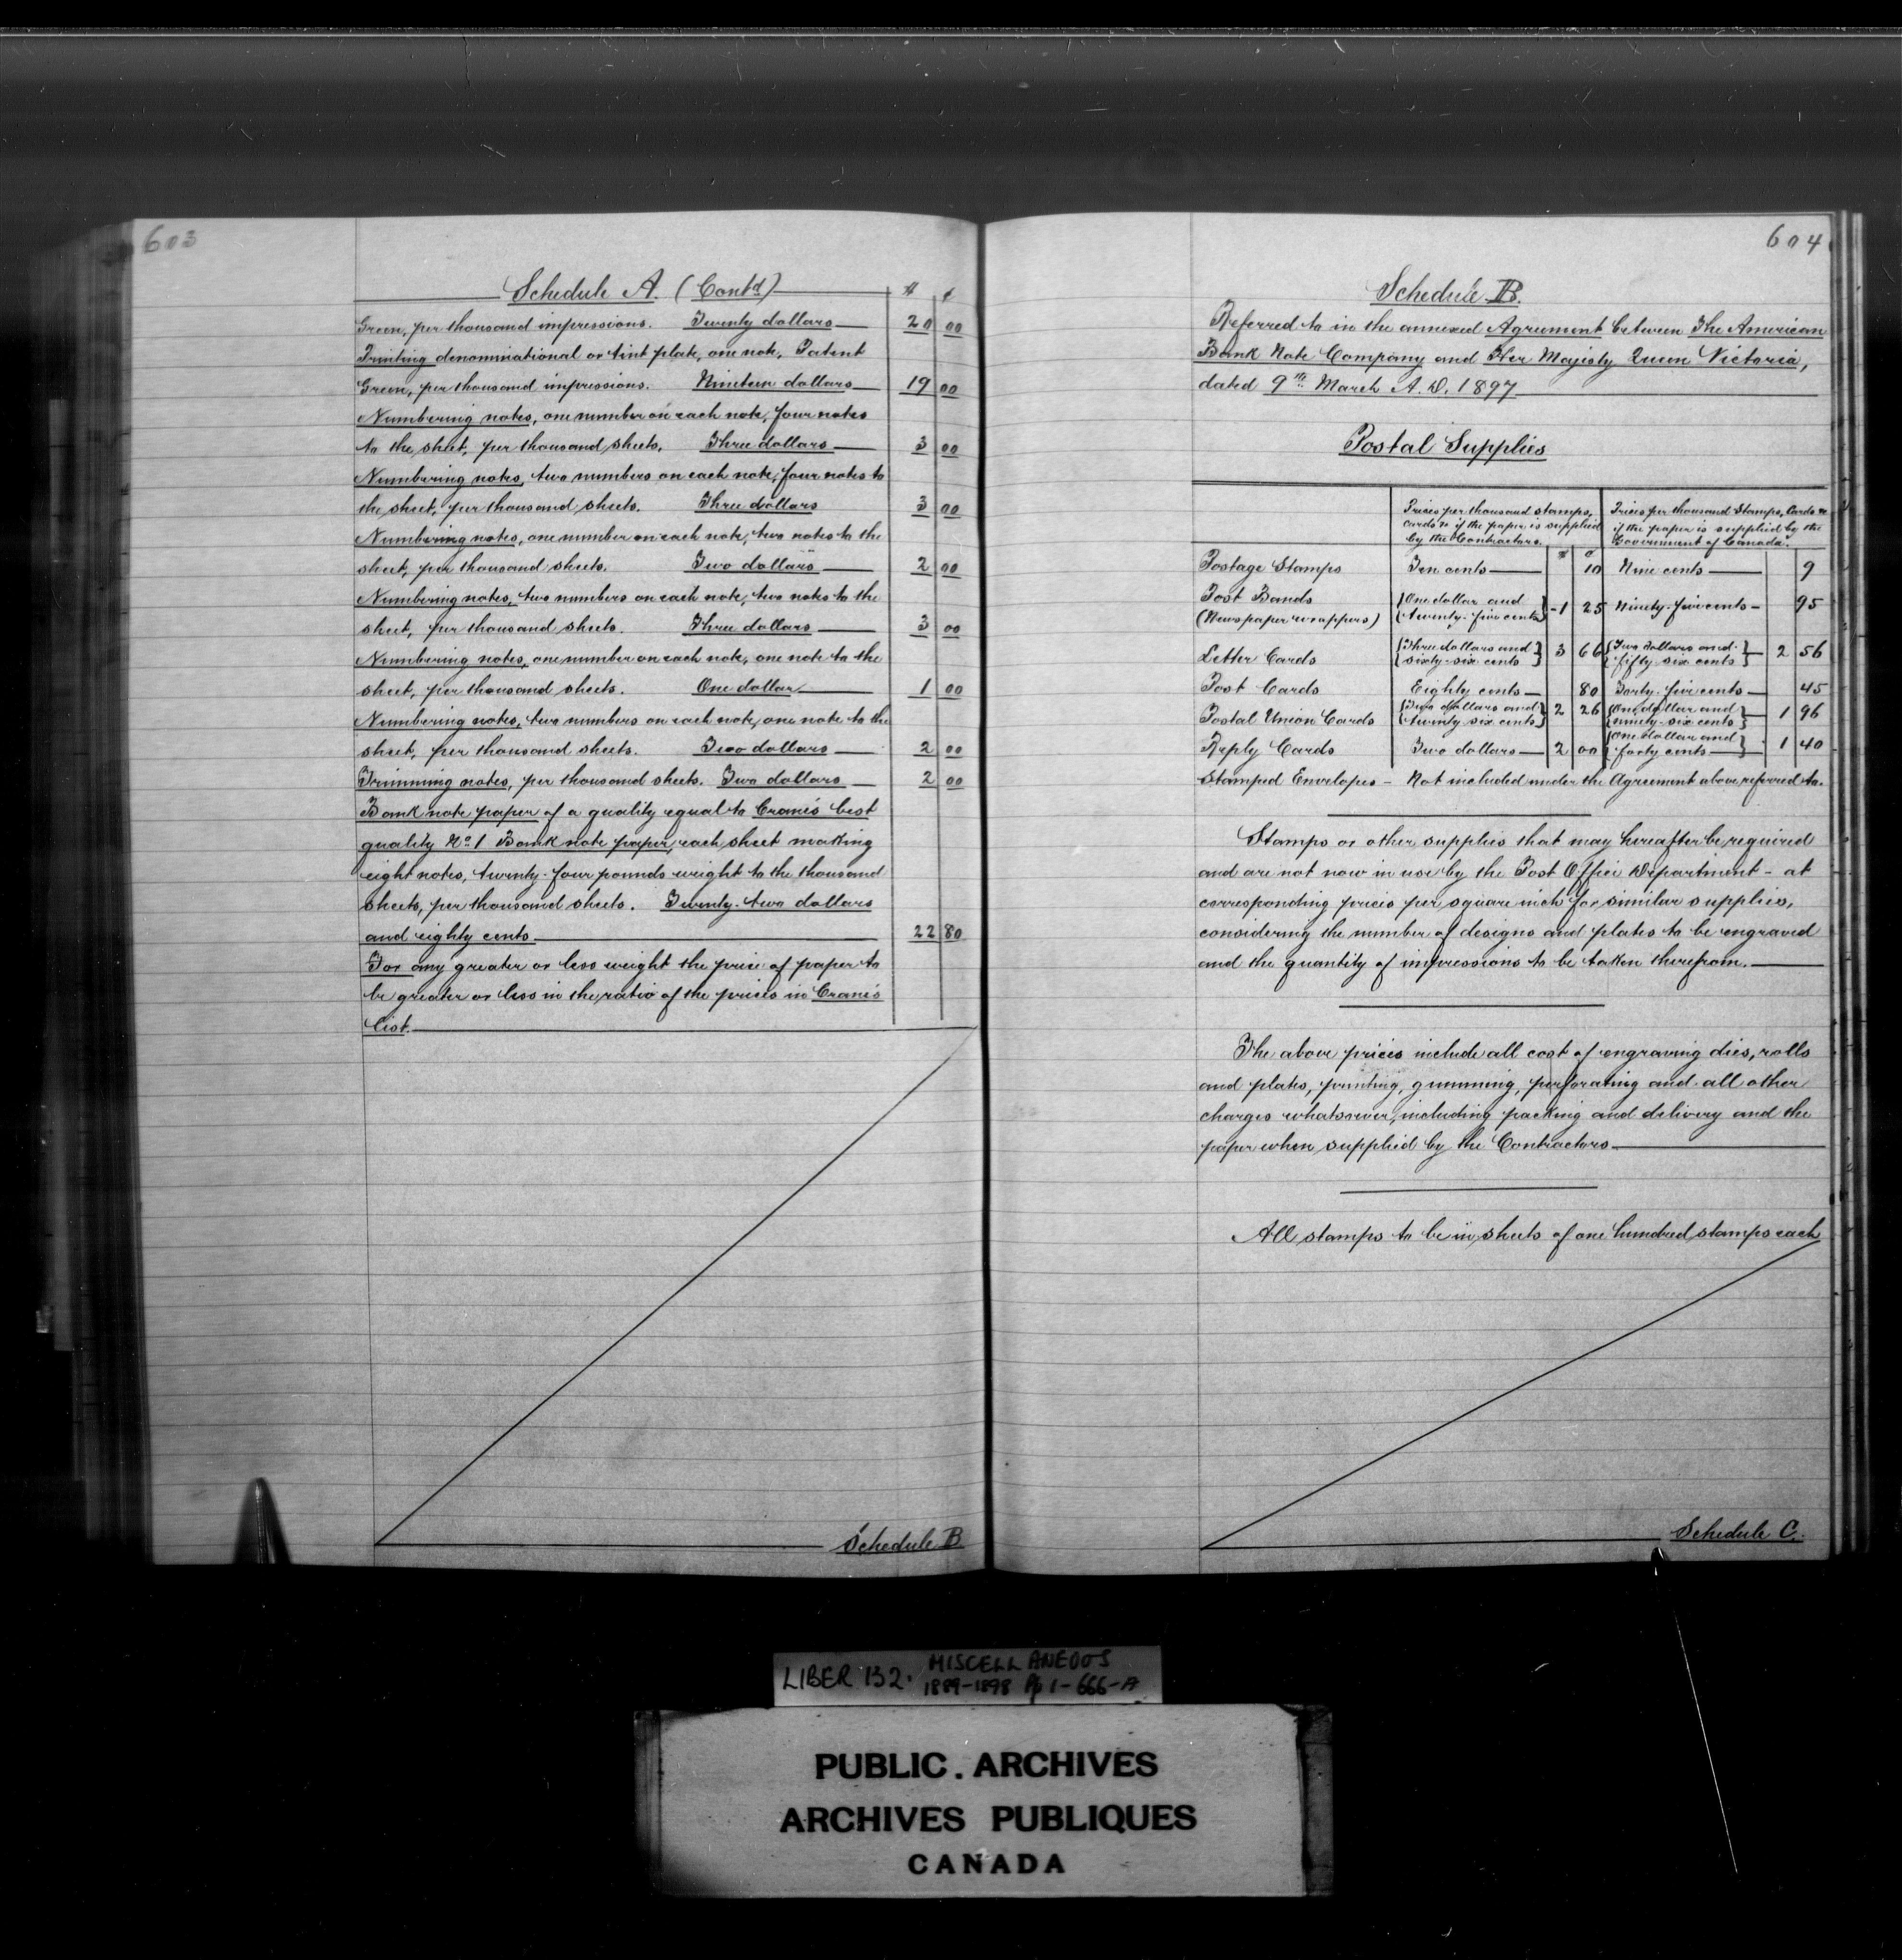 603
Schedule A. (Contd)
$ ¢
Green, per thousand impressions. Twenty dollars 20 00
Printing denominational or tint plate, one note, Patent
Green, per thousand impressions. Nineteen dollars 19 00
Numbering notes, one number on each note, four notes
to the sheet, per thousand sheets. Three dollars 3 00
Numbering notes, two numbers on each note, four notes to
the sheet, per thousand sheets. Three dollars 3 00
Numbering notes, one number on each note, two notes to the
sheet, per thousand sheets. Two dollars 2 00
Numbering notes, two numbers on each note, two notes to the
sheet, per thousand sheets. Three dollars 3 00
Numbering notes, one number on each note, one note to the
sheet, per thousand sheets. One dollar 1 00
Numbering notes, two numbers on each note, one note to the
sheet, per thousand sheets. Two dollars 2 00
Trimming notes, per thousand sheets. Two dollars 2 00
Bank note paper of a quality equal to Crane's best
quality No 1 Bank note paper, each sheet making
eight notes, twenty-four pounds weight to the thousand
sheets, per thousand sheets. Twenty-two dollars
and eighty cents 22 80
For any greater or less weight the price of paper to
be greater or less in the ratio of the prices in Crane's
list.
Schedule B
604
Schedule B.
Referred to in the annexed Agreement between The American
Bank Note Company and Her Majesty Queen Victoria,
dated 9th March A.D. 1897
Postal Supplies
Prices per thousand stamps,
cards &c if the paper is supplied
by the Contractors.
Prices per thousand Stamps, Cards &c
if the paper is supplied by the
Government of Canada.
$ c
Postage Stamps Ten cents 10 Nine cents 9
Post Bands
(Newspaper wrappers) {One dollar and twenty-five cents} 1 25 Ninety-five cents 95
Letter Cards {Three dollars and sixty-six cents} 3 66 {Two dollars and fifty-six cents} 2 56
Post Cards Eighty cents 80 Forty-five cents 45
Postal Union Cards {Two dollars and twenty six cents} 2 26 {One dollar and ninety-six cents} 1 96
Reply Cards Two dollars 2 00 {One dollar and forty cents} 1 40
Stamped Envelopes - Not included under the Agreement above referred to.
Stamps or other supplies that may hereafter be required
and are not now in use by the Post Office Department - at
corresponding prices per square inch for similar supplies,
considering the number of designs and plates to be engraved
and the quantity of impressions to be taken therefrom.
The above prices include all cost of engraving dies, rolls
and plates, printing, gumming, perforating and all other
charges whatsoever, including packing and delivery and the
paper when supplied by the Contractors
All stamps to be in sheets of one hundred stamps each
Schedule C.
LIBER 132. MISCELLANEOUS
1889-1898 Pp 1-666-A
PUBLIC. ARCHIVES
ARCHIVES PUBLIQUES
CANADA